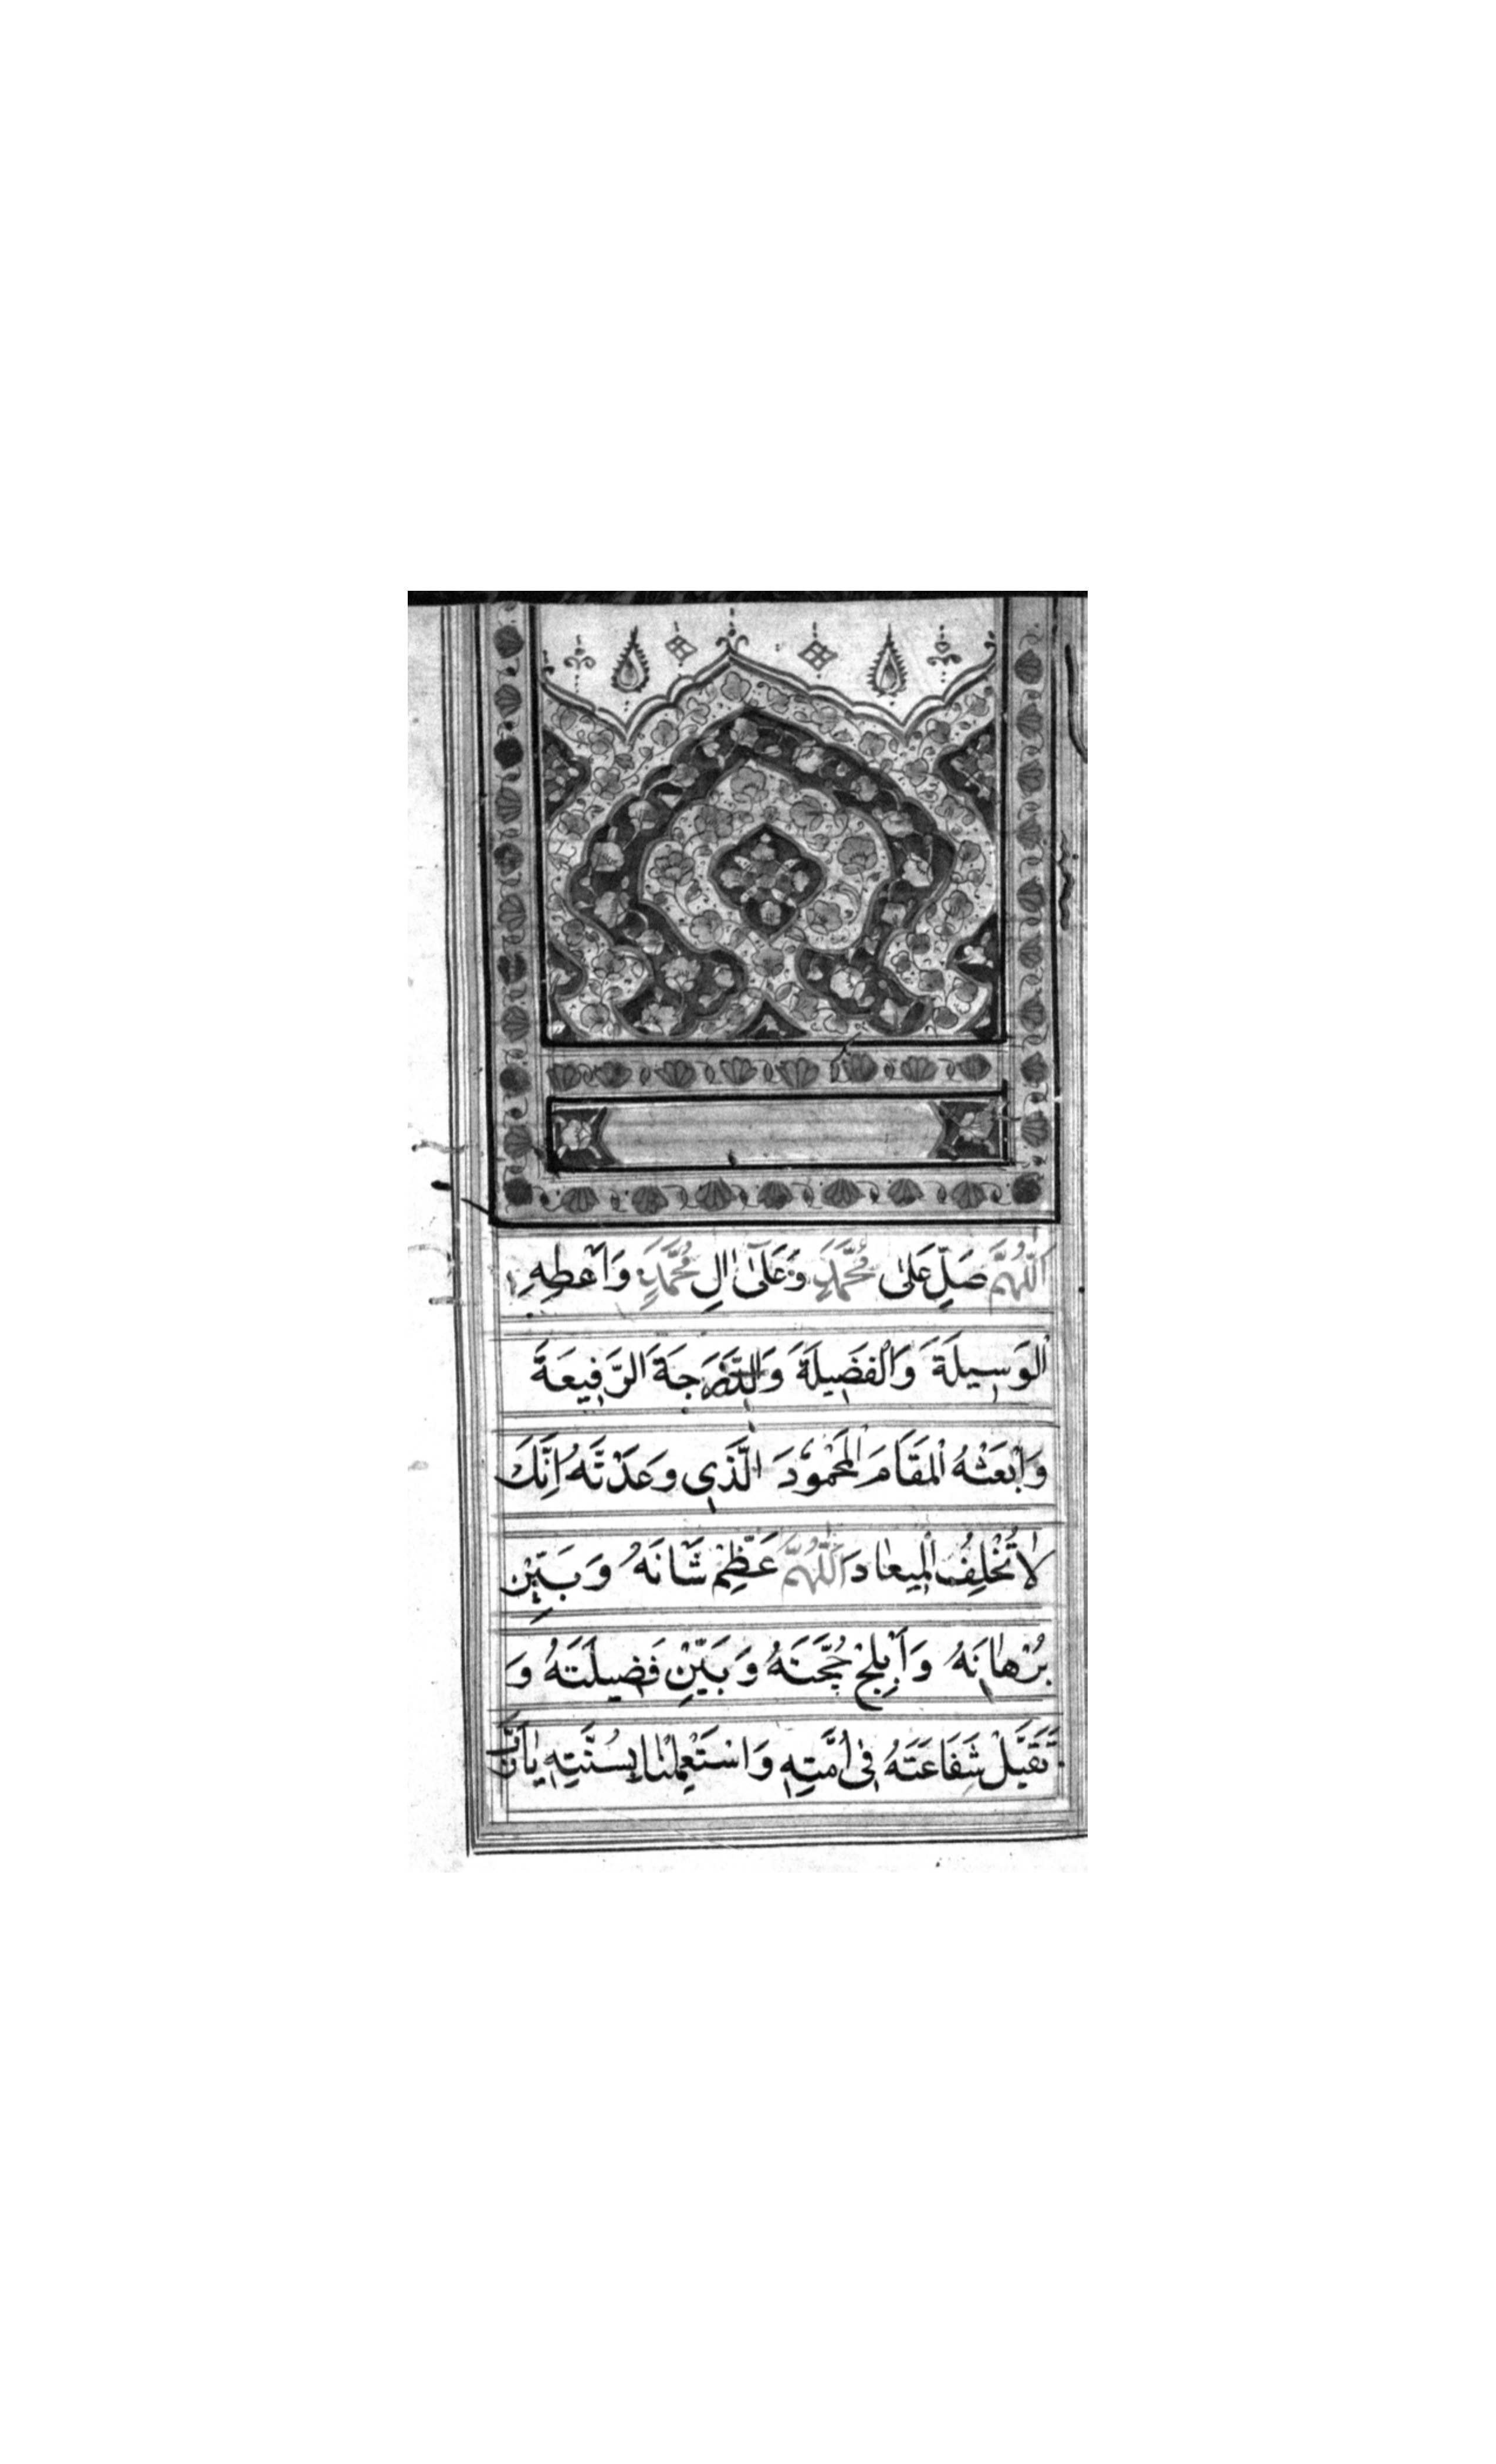 اَللّٰهُمَّ صَلِّ عَلٰى مُحَمَّدٍ وَعَلٰٓى اٰلِ مُحَمَّدٍ وَاَعْطِهِ
الْوَسِيلَةَ وَالْفَضِيلَةَ وَالدَّرَجَةَ الرَّفِيعَةَ
وَابْعَثْهُ الْمَقَامَ الْمَحْمُودَ الَّذِي وَعَدْتَّهُ اِنَّكَ
لَا تُخْلِفُ الْمِيعَادَ اَللّٰهُمَّ عَظِّمْ شَانَهُ وَبَيِّنْ
بُرْهَانَهُ وَاَبْلِجْ حُجَّتَهُ وَبَيِّنْ فَضِيلَتَهُ وَ
تَقَبَّلْ شَفَاعَتَهُ فِي اُمَّتِهِ وَاسْتَعْمِلْنَا بِسُنَّتِهِ يَا رَبَّ